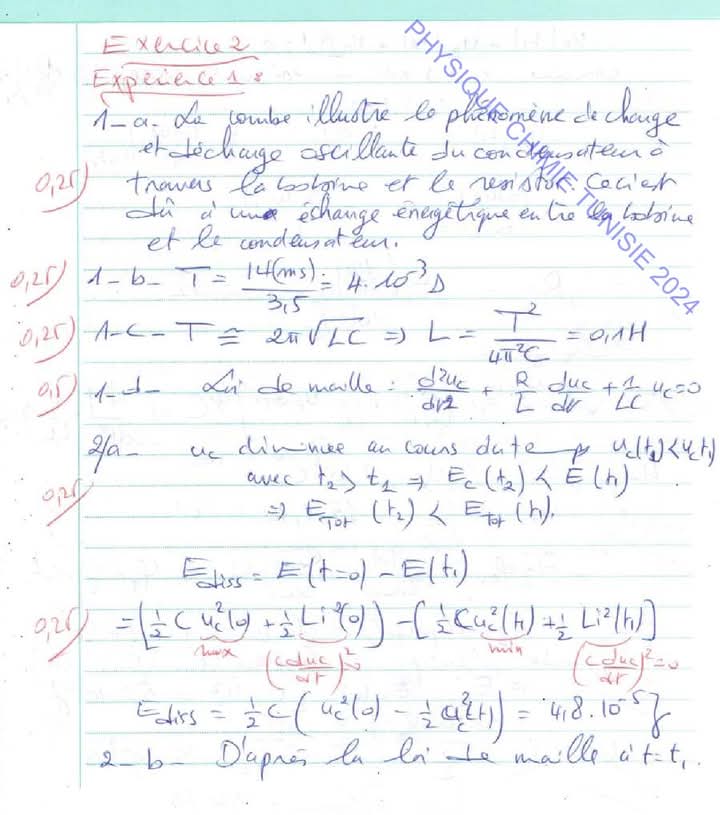 Exercice 2
Expérience 1 :
1-a- La courbe illustre le phénomène de charge
et décharge oscillante du condensateur à
0,25) travers la bobine et le resistor. Ceci est
dû à une échange énergétique entre la bobine
et le condensateur.
0,25) 1-b- T = 14(ms)/3,5 = 4.10⁻³ s
0,25) 1-c- T ≅ 2π√LC ⇒ L = T²/4π²C = 0,1H
0,5) 1-d- Loi de maille : d²uc/dt² + R/L duc/dt + 1/LC uc = 0
2/a- uc diminue au cours du temps uc(t₂) < uc(t₁)
avec t₂ > t₁ ⇒ Ec(t₂) < E(t₁)
0,25) ⇒ ETot(t₂) < ETot(t₁).
Ediss = E(t=0) - E(t₁)
0,25) = [½ C uc²(0) + ½ Li²(0)] - [½ C uc²(t₁) + ½ Li²(t₁)]
max (C duc/dt)² min (C duc/dt)² = 0
Ediss = ½ C (uc²(0) - ½ uc²(t₁)) = 4,8.10⁻⁵ J
2-b- D'après la loi de maille à t = t₁.
PHYSIQUE CHIMIE TUNISIE 2024